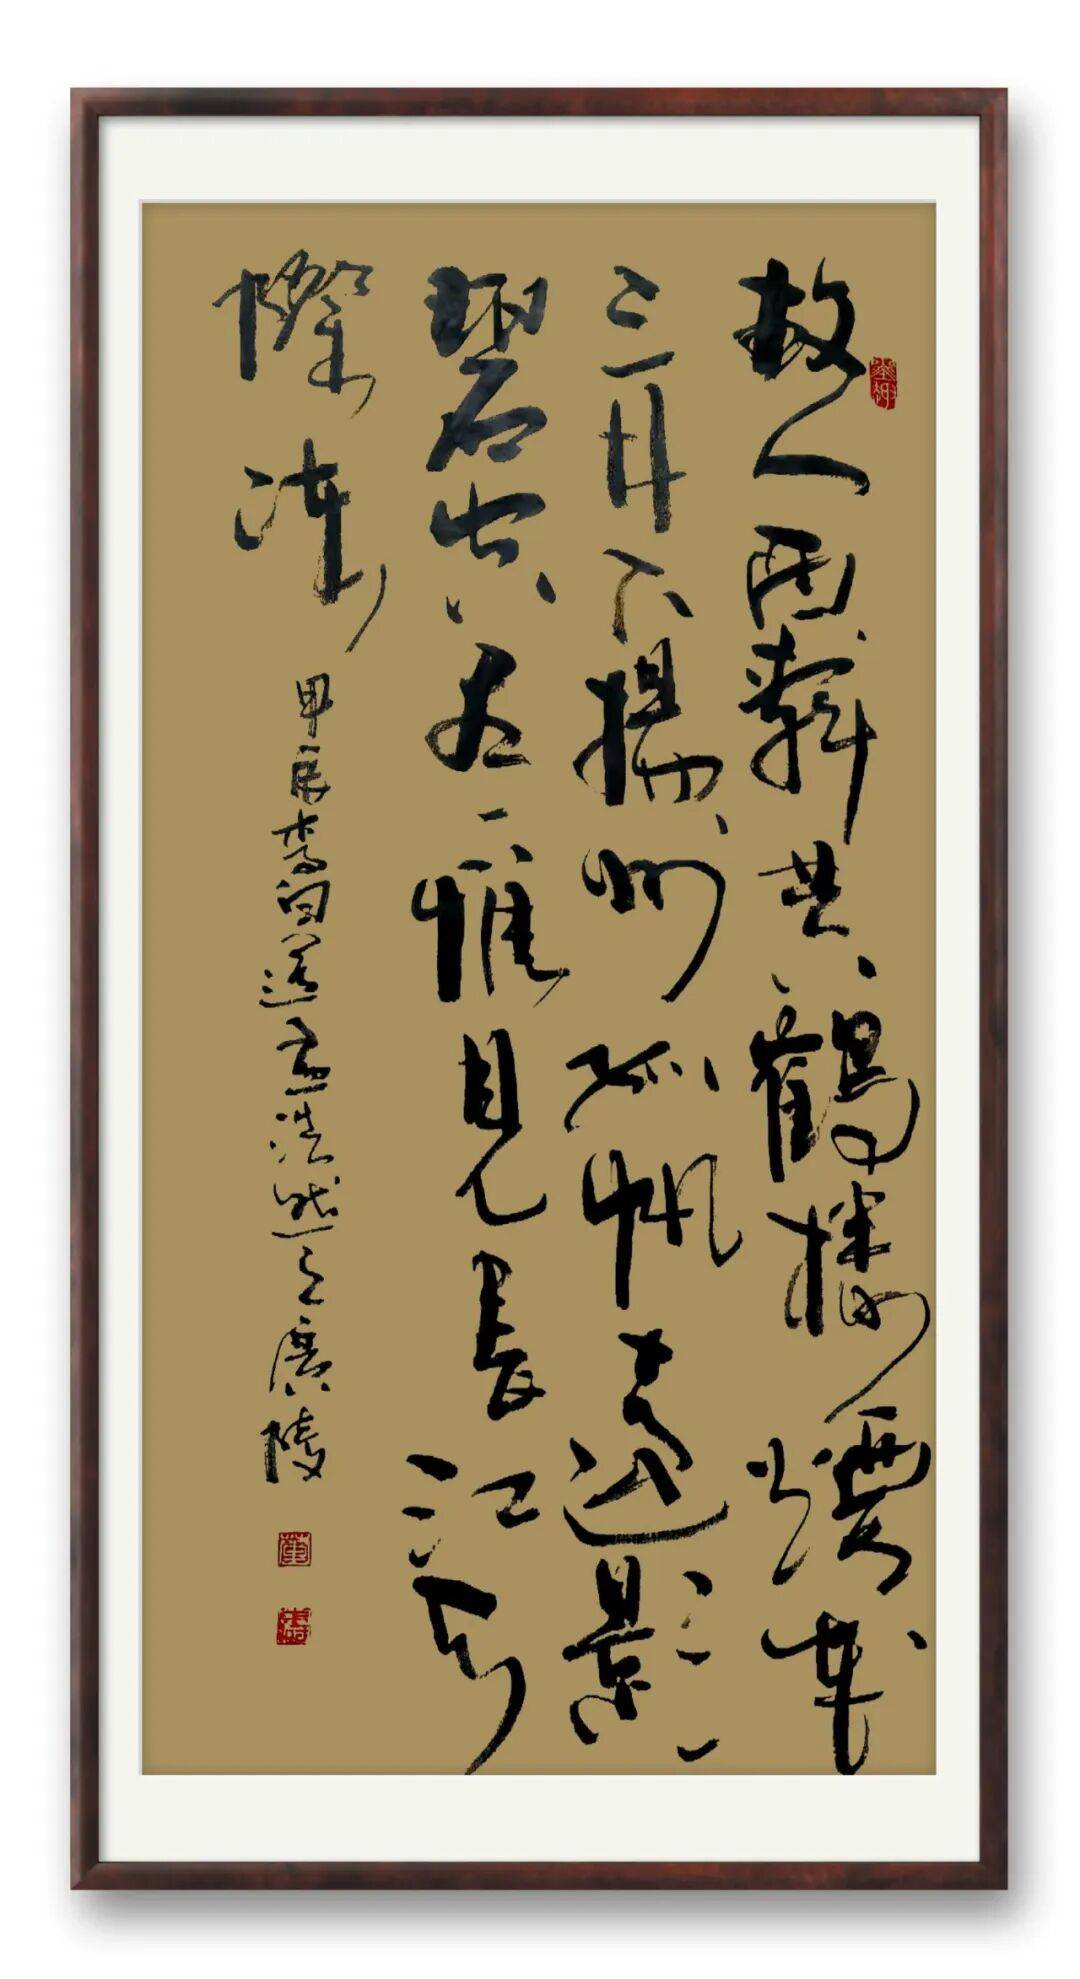 故人西辭黄鶴樓煙花
三月下揚州孤帆遠影
碧空盡惟見長江天
際流
甲辰李白送孟浩然之廣陵